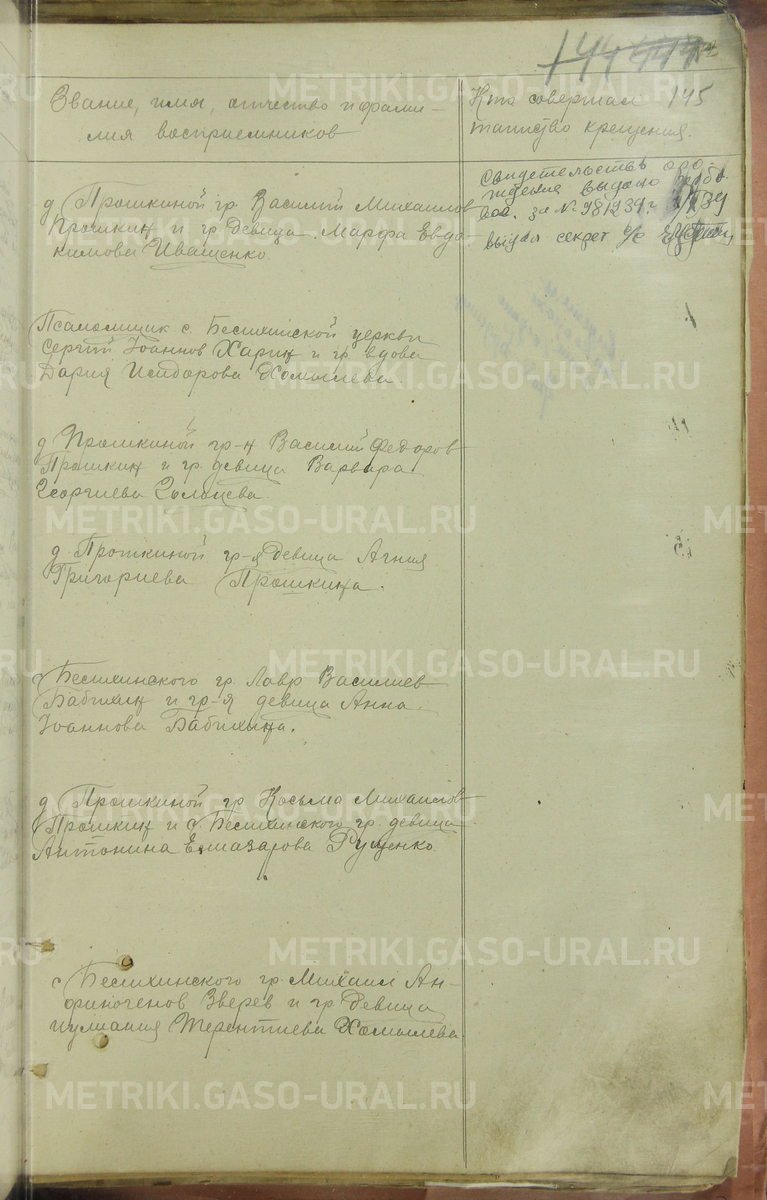 145
Звание, имя, отчество и фами-
лия восприемников
Кто совершал
таинство крещения.
д. Прошкиной гр. Василий Михаилов
Прошкин и гр. девица Марфа Евдо-
кимова Иващенко.
Свидетельство о ро-
ждения выдано
за № 981939 г.
выдал секрет с/с
Псаломщик с. Бешкинской церкви
Сергий Иоаннов Харин и гр. вдова
Дария Исидорова Хомылева.
д. Прошкиной гр-н Василий Федоров
Прошкин и гр. девица Варвара
Георгиева
д. Прошкиной гр-я девица Агния
Григориева Прошкина.
гр. Лавр Васильев
Бабихин и гр-я девица Анна
Иоаннова Бабихина.
д. Прошкиной гр. Косьма Михаилов
Прошкин и с. гр. девица
Антонина Елиазарова Рущенко
с. гр. Михаил Ан-
финогенов Зверев и гр. девица
Иулиания Терентиева Хомылева.
METRIKI.GASO-URAL.RU